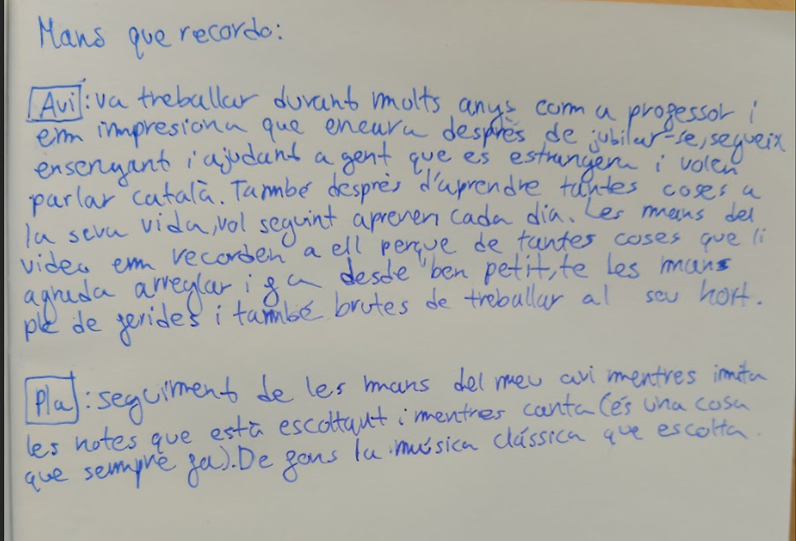 Mans que recordo:
Avi: va treballar durant molts anys com a professor i
em impresiona que encura desprès de jubilar-se, segueix
ensenyant i ajudant a gent que es estrangera i volen
parlar català. També desprès d'aprendre tantes coses a
la seva vida, vol seguint apenen cada dia. Les mans del
video em recorden a ell perque de tantes coses que li
agrada arreglar i fa desde ben petit, te les mans
ple de ferides i també brutes de treballar al seu hort.
Pla: seguiment de les mans del meu avi mentres imita
les notes que està escoltant i mentres canta (és una cosa
que sempre fa). De fons la música clássica que escolta.